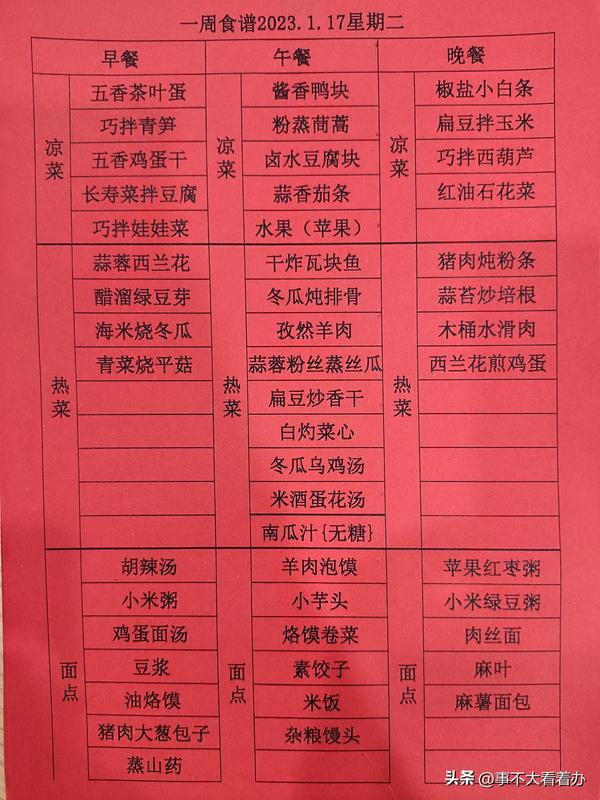 一周食谱2023.1.17星期二
早餐 午餐 晚餐
凉菜 五香茶叶蛋 凉菜 酱香鸭块 凉菜 椒盐小白条
巧拌青笋 粉蒸茼蒿 扁豆拌玉米
五香鸡蛋干 卤水豆腐块 巧拌西葫芦
长寿菜拌豆腐 蒜香茄条 红油石花菜
巧拌娃娃菜 水果（苹果）
热菜 蒜蓉西兰花 热菜 干炸瓦块鱼 热菜 猪肉炖粉条
醋溜绿豆芽 冬瓜炖排骨 蒜苔炒培根
海米烧冬瓜 孜然羊肉 木桶水滑肉
青菜烧平菇 蒜蓉粉丝蒸丝瓜 西兰花煎鸡蛋
扁豆炒香干
白灼菜心
冬瓜乌鸡汤
米酒蛋花汤
南瓜汁{无糖}
面点 胡辣汤 面点 羊肉泡馍 面点 苹果红枣粥
小米粥 小芋头 小米绿豆粥
鸡蛋面汤 烙馍卷菜 肉丝面
豆浆 素饺子 麻叶
油烙馍 米饭 麻薯面包
猪肉大葱包子 杂粮馒头
蒸山药
头条 @事不大看着办